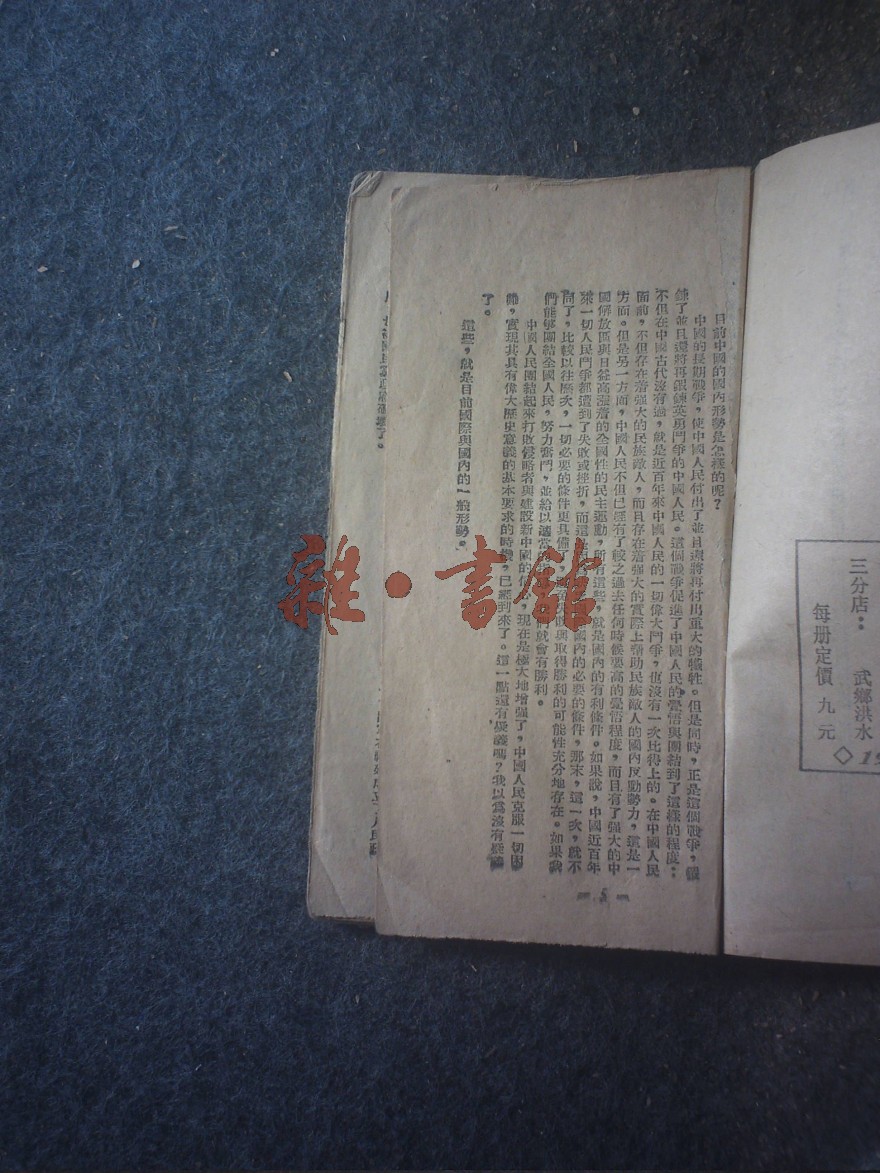 三分店： 武鄉洪水
每册定價 九 元
◇19
目前中國的國內形勢是怎樣的呢？
中國的長期戰爭，使中國人民付出了並且還將再付出重大的犧牲。但是同時，正是這個戰爭，鍛
鍊了並且還將再鍛鍊英勇鬥爭的中國人民。這個戰爭促進了中國人民的覺悟與團結到了這樣的程度：
不但在中國古代沒有過，就是近百年來中國人民的一切偉大鬥爭，也沒有一次比得上的。在中國人民
面前，不但存在着强大的民族敵人，而且存在着强大的實際上幫助民族敵人的國內反動勢力，這是一
方面。但是另一方面，中國人民不但已經有了較之過去任何時候要高的覺悟程度，而且有了强大的中
國解放區與日益高漲着的全國性的民主運動，所有這些，就是國內的有利條件。如果說，中國近百年
來一切人民鬥爭都遭到了失敗或挫折，而這 國內的必要的條件，那末，這一次，就不
同了，比較以往歷次，一切必要的條件更具備了， 敗與取得勝利的可能性充分地存在。如果我
們能够團結全國人民，努力奮鬥，並給以適當的 就會有勝利。
中國人民團結起來打敗侵略者與建設新中國的 現在是極大地增强了，中國人民克服一切
難，實現其具有偉大歷史意義的基本要求的時機，已經到來了。這一點還有疑義嗎？我以為沒有疑義
了。
這些，就是目前國際與國內的一般形勢。
5
雜·書館